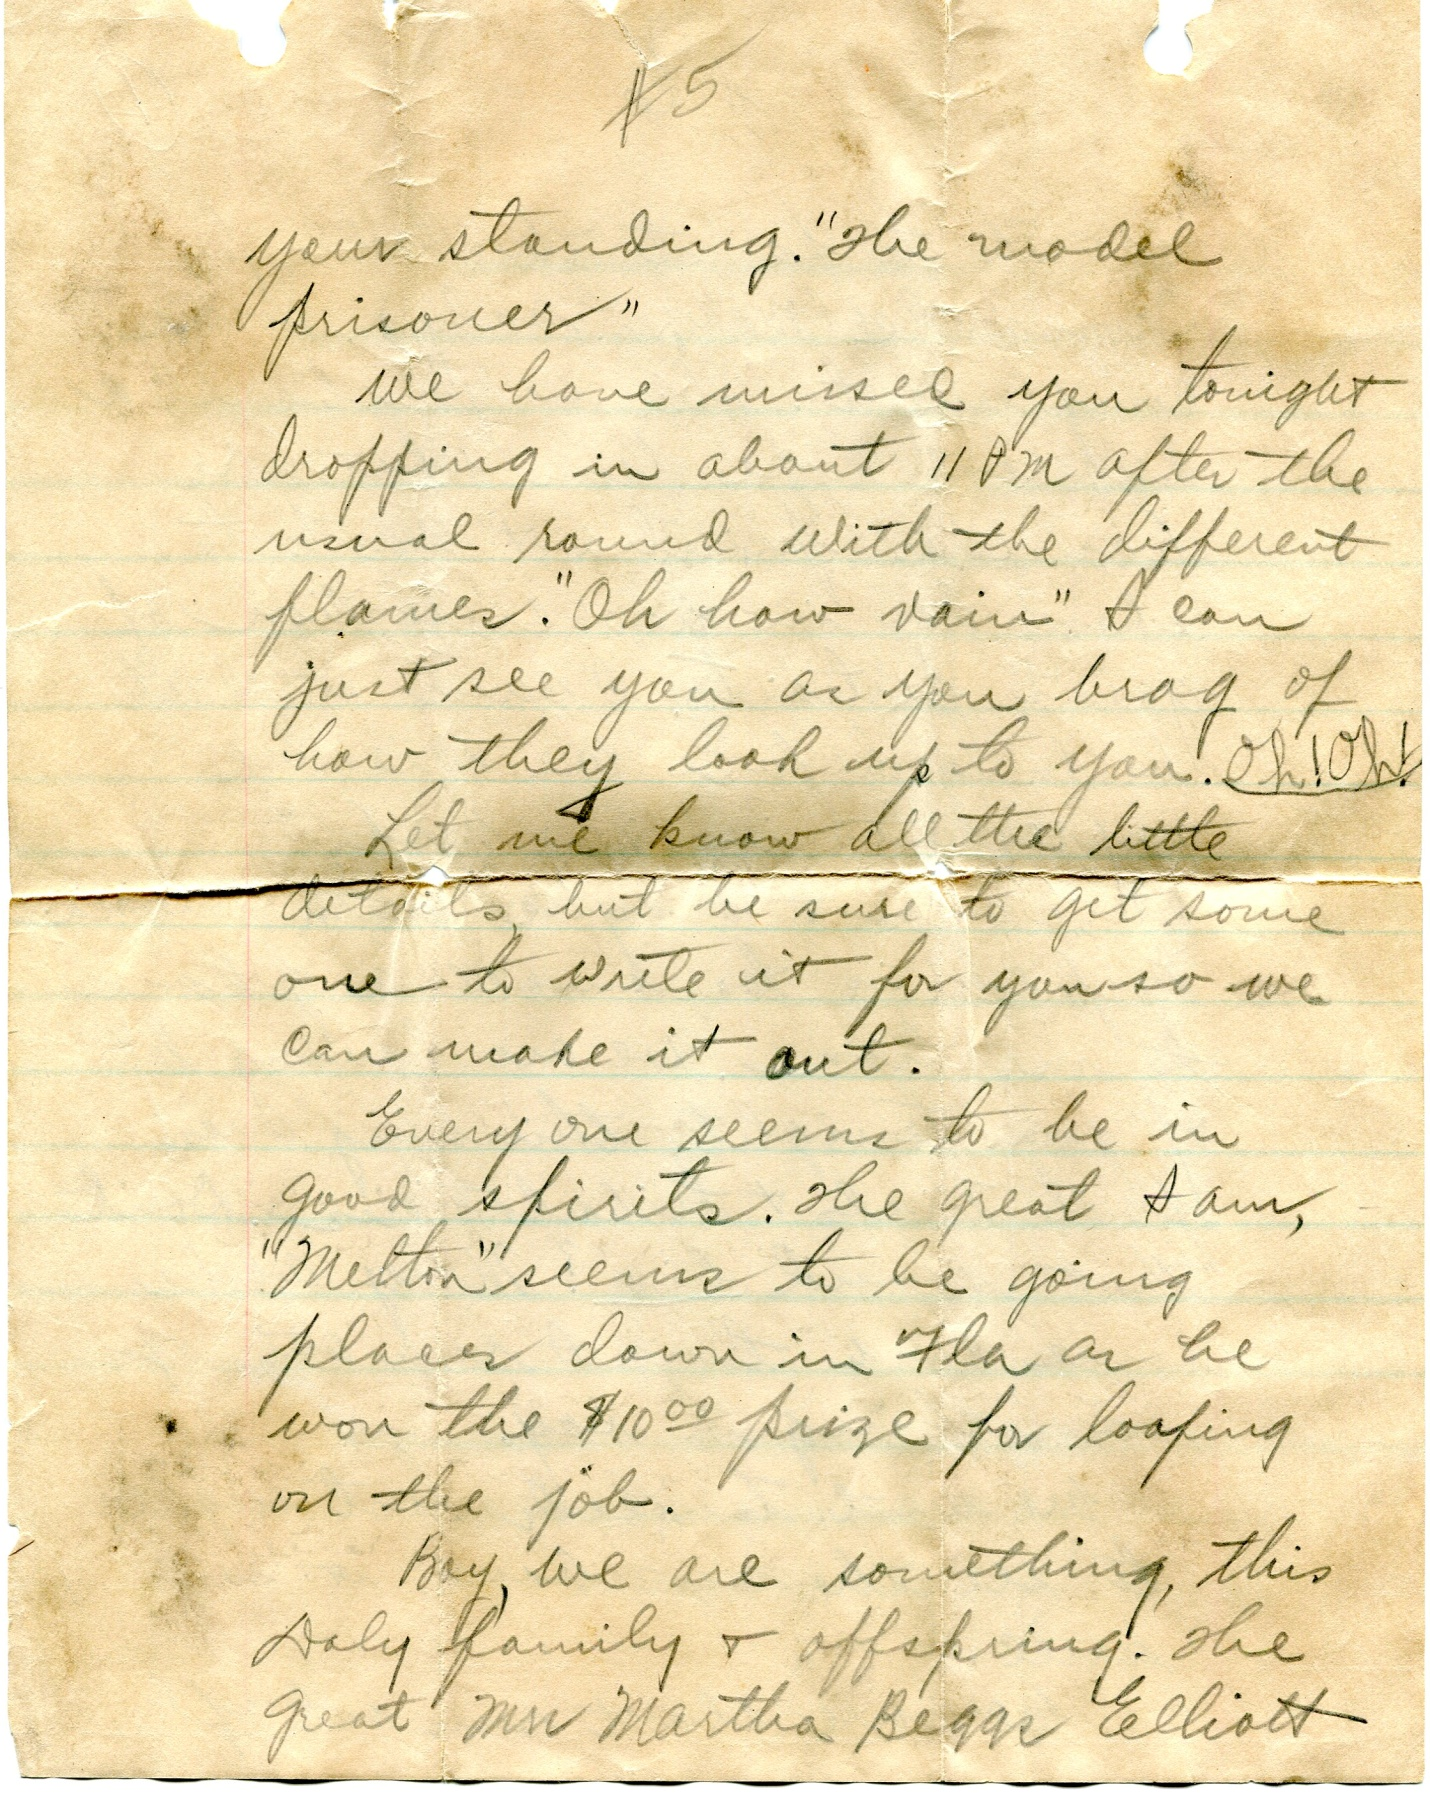 5
your standing. "The model
prisoner"
We have missed you tonight
dropping in about 11 PM after the
usual round with the different
flames. "Oh how vain" I can
just see you as you brag of
how they look up to you. Oh! Oh!
Let me know all the little
details, but be sure to get some
one to write it for you so we
can make it out.
Every one seems to be in
good spirits. The great I am,
"Melton" seems to be going
places down in Fla as he
won the $10.00 prize for loafing
on the job.
Boy, we are something, this
Daly family + offspring. The
great Mrs Martha Beggs Elliott